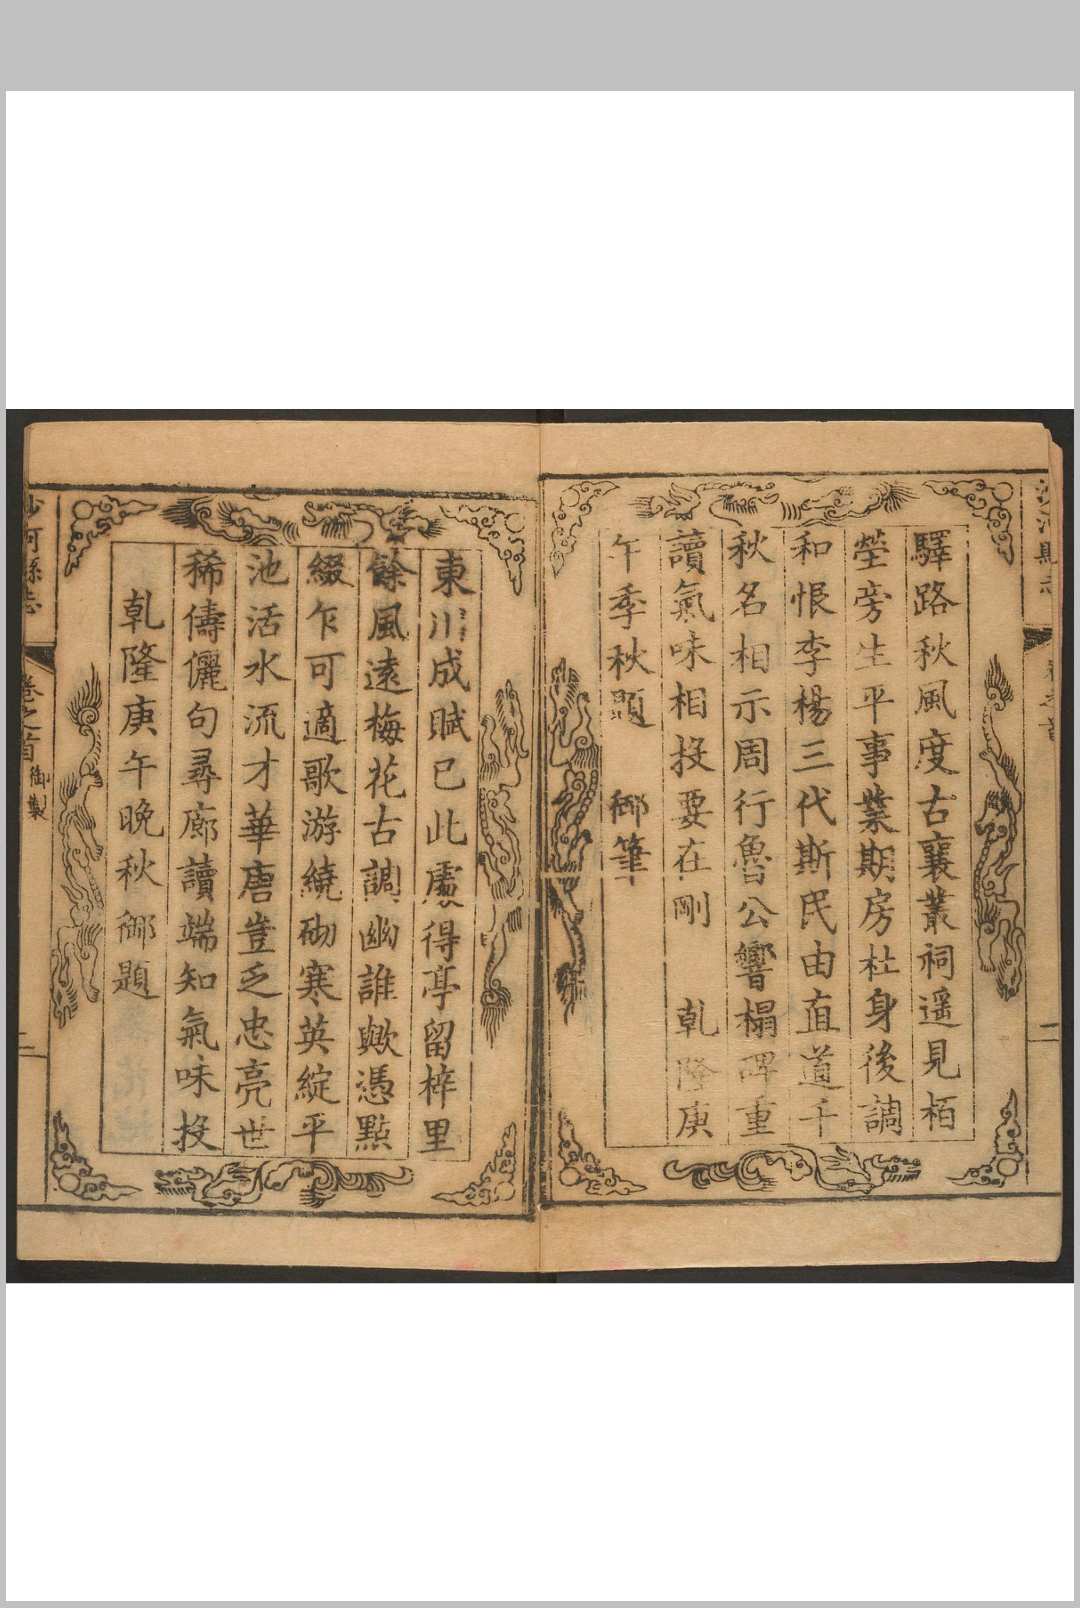 驛路秋風度古襄叢祠遥見栢
塋旁生平事業期房杜身後調
和恨李楊三代斯民由直道千
秋名相示周行魯公響榻碑重
讀氣味相投要在剛　乾隆庚
午季秋題　御筆
東川成賦已此處得亭留梓里
餘風遠梅花古調幽誰歟憑點
綴乍可適歌游繞砌寒英綻平
池活水流才華唐豈乏忠亮世
稀儔儷句尋廊讀端知氣味投
乾隆庚午晚秋御題
沙河縣志　卷之首　御製　二